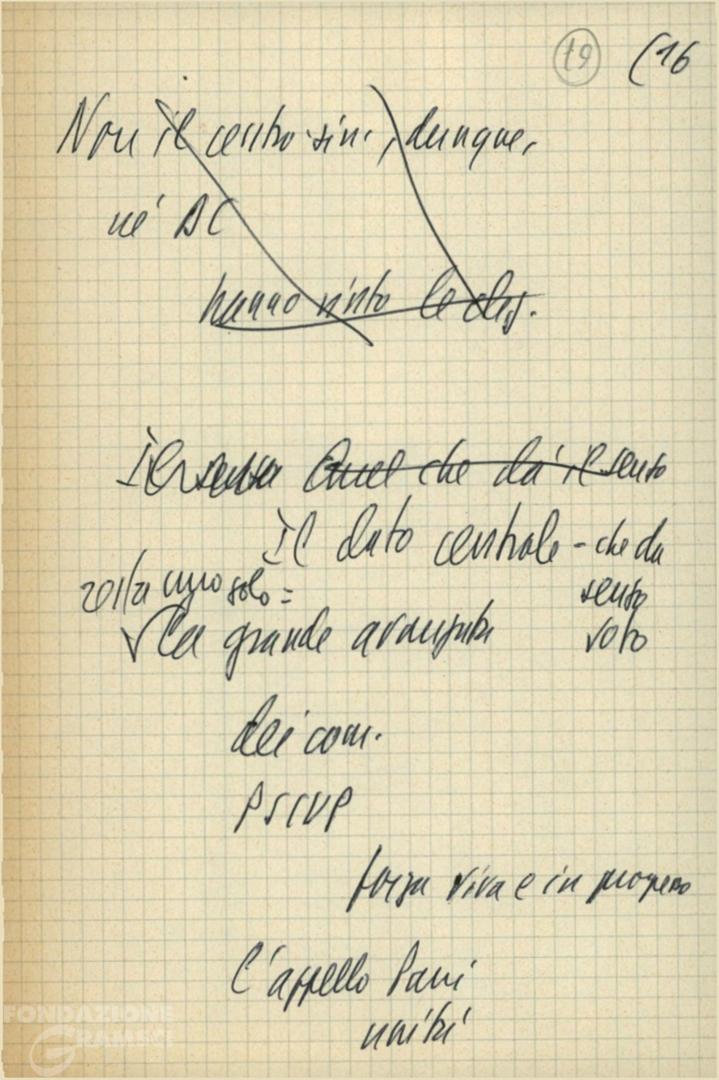 19 (16
Non il centro-sin., dunque,
né DC
hanno vinto le elez.
Il senso Quel che dà il senso
Il dato centrale - che da
senso
voto
uno solo =
La grande avanzata
dei com.
PSIUP
forza viva e in progresso
L'appello Parri
unità
FONDAZIONE
GRAMSCI